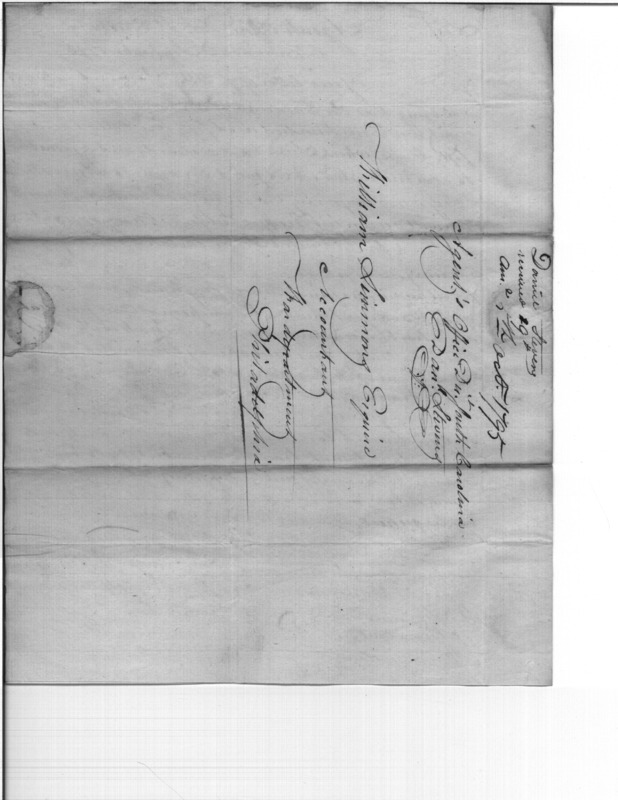 Daniel Stevens
12 Oct. 1795
Agent's Office Dist. South Carolina
Danl. Stevens
William Simmons Esquire
Accountant
War department
Philadelphia